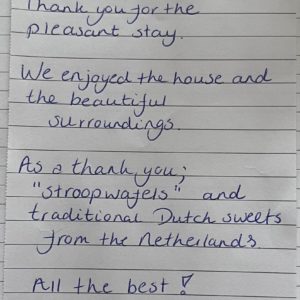 Thank you for the
pleasant stay.
We enjoyed the house and
the beautiful
surroundings.
As a thank you;
"stroopwafels" and
traditional Dutch sweets
from the Netherlands.
All the best !